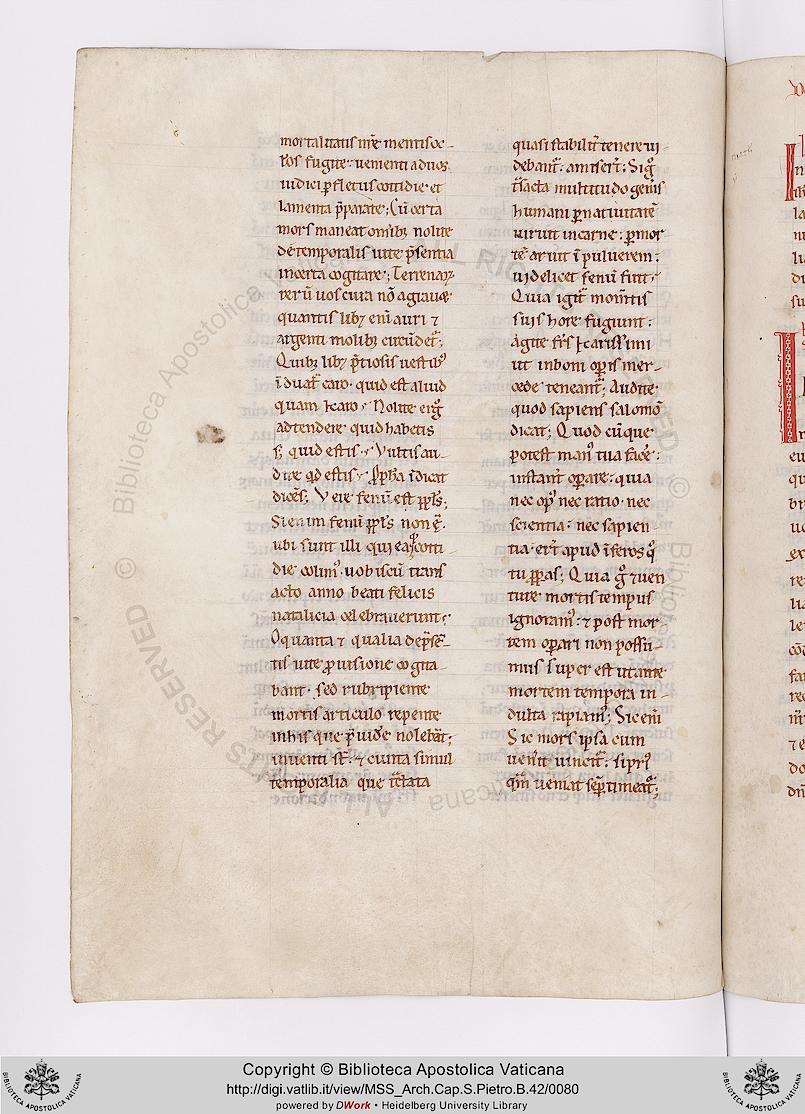 mortalitatis nr̄e mentis oc-
l̓os fugite: uenienti ad uos
iudici p̄ fletus cottidie et
lamenta p̄parate; Cū certa
mors maneat omĭbꝫ nolite
de temporalis uite p̄sentia
incerta cogitare; Terrenaꝝ
rerū uos cura nō agrauæ
quantis libꝫ eni auri ⁊
argenti molibꝫ circūdet᷑;
Quibꝫ libꝫ p̄tiosis uestibꝰ
īduat᷑ caro· quid est aliud
quam kato? Nolite ergͦ
adtendere quid habetis
sꝫ quid estis? Vultis au-
dire qd̄ estis? Pph̄a īdicat
dicēs; Vere fenū est ppl̄s;
Si enim fenū ppl̄s non ē·
ubi sunt illi qui ea cotti-
die colimꝰ uobiscū trans
acto anno beati felicis
natalicia celebrauerunt?
O quanta ⁊ qualia de p̄sen-
tis uite prouisione cogita-
bant· sed rubripiente
mortis articulo repente
inhis que p̄uidere nolebāt;
inuenti st̄: ⁊ cuncta simul
temporalia que
quasi stabilit᷑ tenere ui-
debant᷑: amiser̄t; Si gͦ
trāsacta multitudo gen̄is
humani per natiuitatē
uiruit incarne: per mor
tē aruit ī puluerem:
uidelicet fenū fuit?
Quia igit᷑ mom̄tis
suis hore fugiunt:
Agite fr̄s karissimi
ut in boni operis mer-
cede teneant᷑; Audite
quod sapiens salomō
dicat; Quod cūque
potest manꝰ tua facere:
instant᷑ operare: quia
nec opꝰ nec ratio· nec
scientia: nec sapien-
tia· erit apud īferos qͦ
tu pperas; Quia gͦ ⁊ uen
ture mortis tempus
ignoramꝰ: ⁊ post mor-
tem operari non possū-
mus super est ut ante
mortem tempora in-
dulta rapiamꝰ; Sic eni
Sic mors ipsa cum
uen̄it uincit᷑: si priꝰ
qm̄ ueniat semp̄ timeat᷑;
Copyright © Biblioteca Apostolica Vaticana
http://digi.vatlib.it/view/MSS_Arch.Cap.S.Pietro.B.42/0080
powered by DWork • Heidelberg University Library